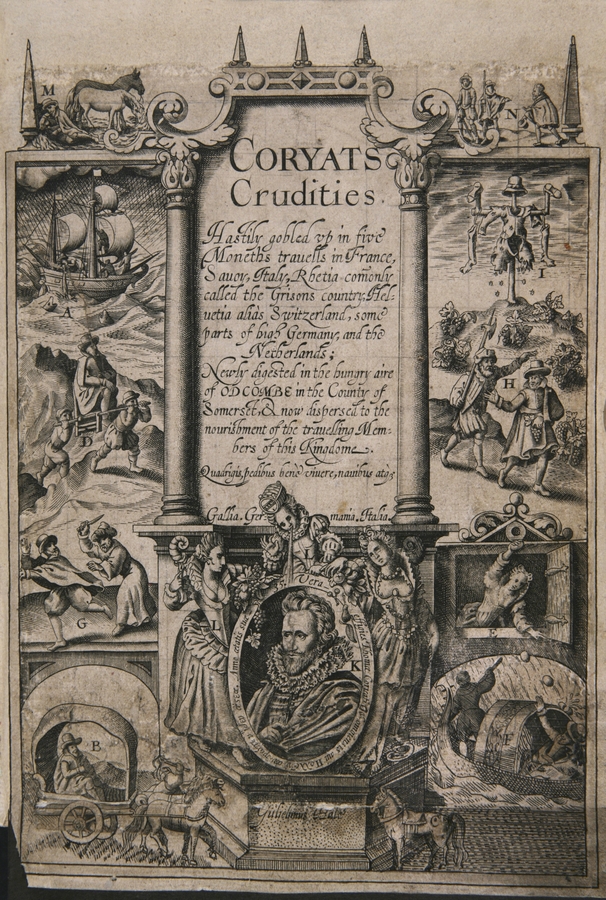 M
N
CORYATS
Crudities.
Hastily gobled vp in five
Moneths trauells in France,
Sauoy, Italy, Rhetia comonly
called the Grisons country, Hel-
uetia aliàs Switzerland, some
parts of high Germany, and the
Netherlands;
Newly digested in the hungry aire
of ODCOMBE in the County of
Somerset, & now dispersed to the
nourishment of the trauelling Mem-
bers of this Kingdome.
Quadrigis, pedibus benè viuere, nauibus atq
Gallia. Ger mania. Italia.
A
I
D
H
G
E
L
K
Vera
B
F
Gulielmus Hole